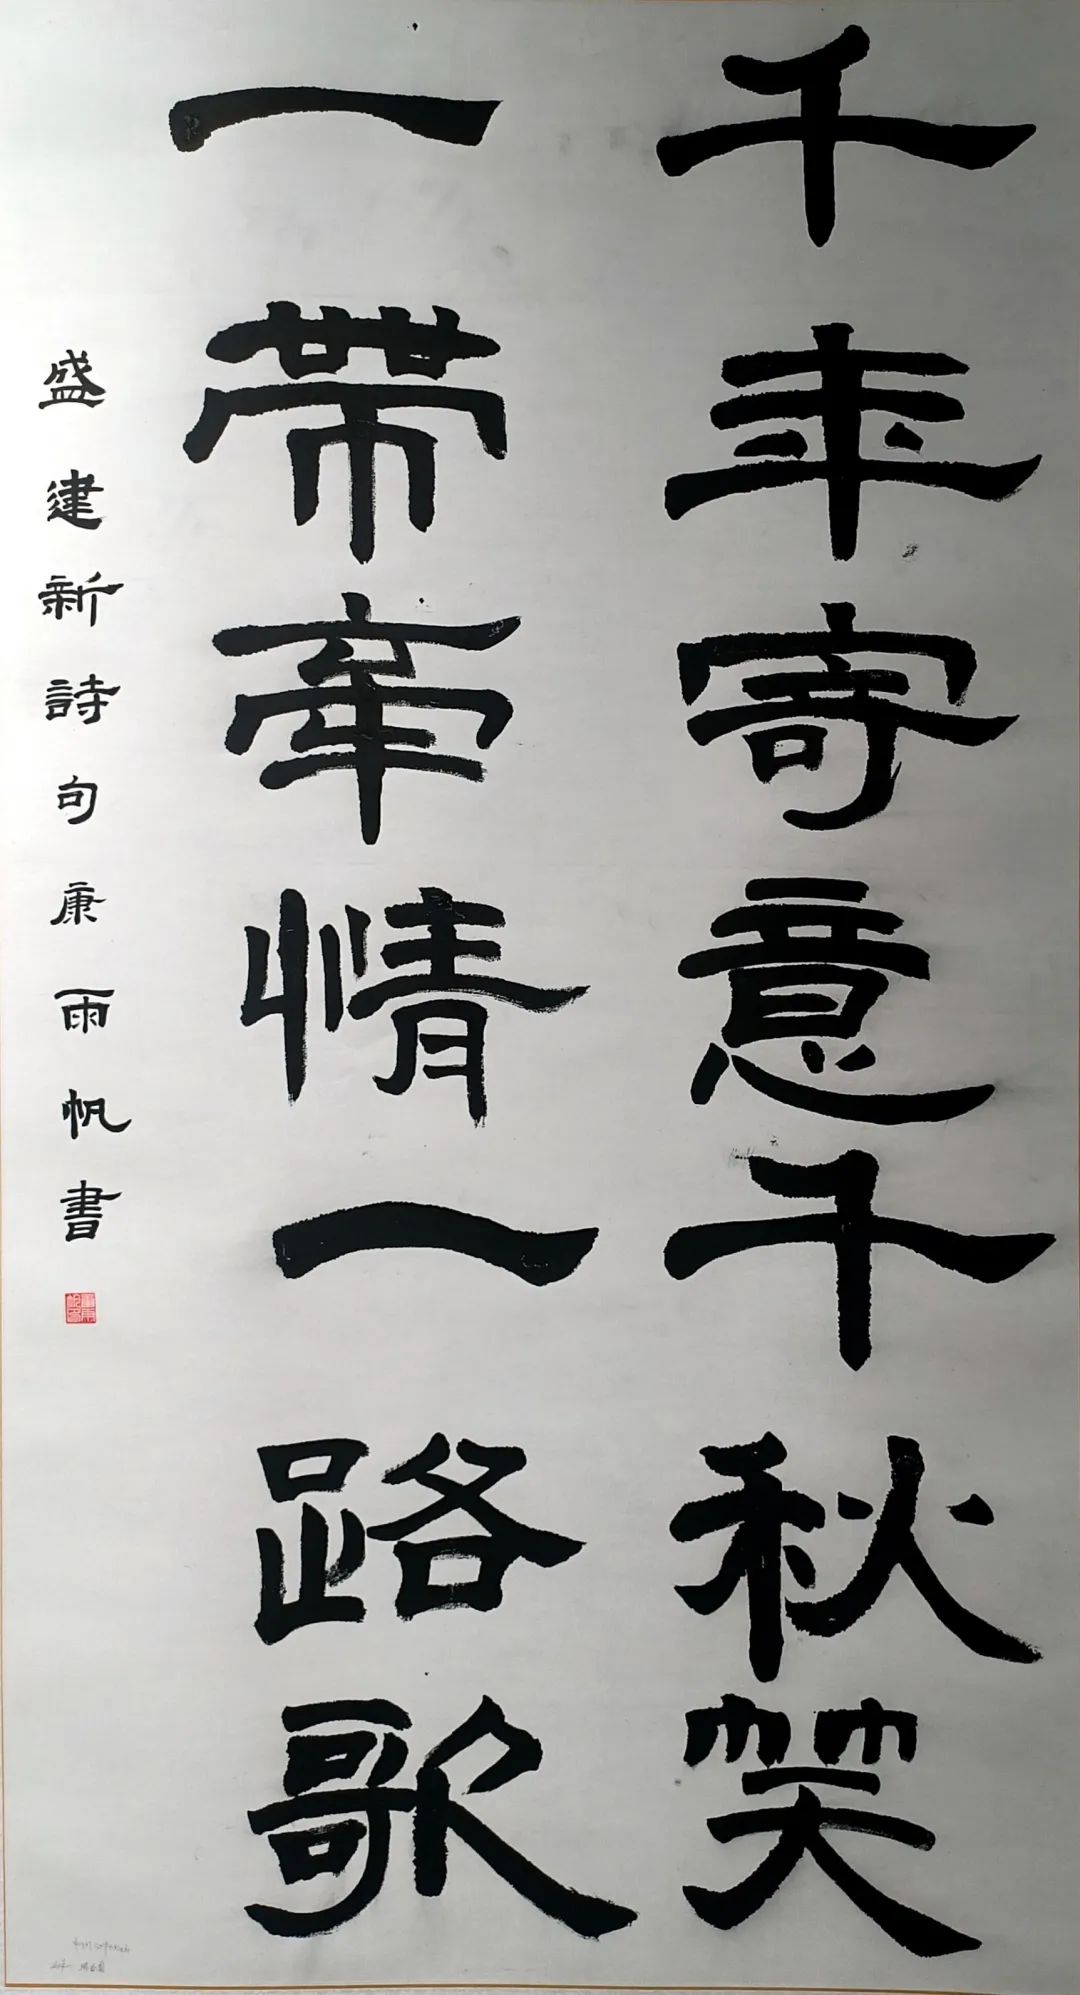 千年寄意千秋笑
一帶牽情一路歌
盛建新詩句康雨帆書